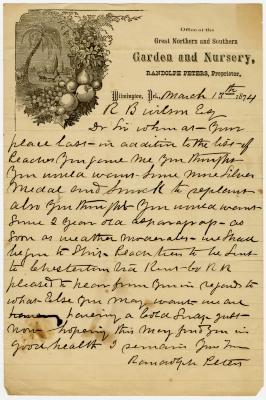 Office of the
Great Northern and Southern
Garden and Nursery,
RANDOLPH PETERS, Proprietor,
Wilmington, Del. March 18th 1874
R B Wilson Esq
Dr Sir when at your
place last in addition to the list of
Peaches You gave me You thought
You would want Some more Silver
Medal and Smock to replant
also You thought You would want
Some 2 Year old asparagrass as
Soon as weather moderates we Shall
begin to Ship Peach trees to be Sent
to Chestertown via Kent Co RR
pleased to hear from You in regards to
what Else You may want we are
having a Cold Snap just
now hoping this may find You in
good health I remain Yours Tr
Randolph Peters